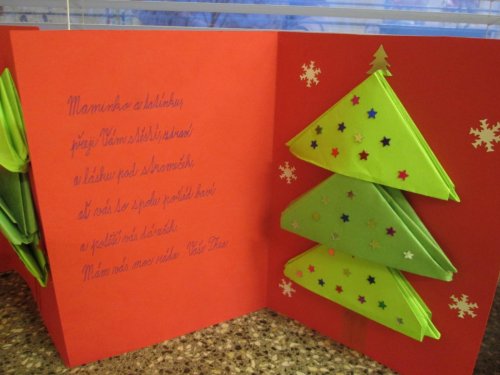 Maminko a tatínku,
přeji Vám štěstí, zdraví
a lásku pod stromeček,
ať vás to spolu pořád baví
a potěší vás dáreček.
Mám vás moc ráda. Vaše